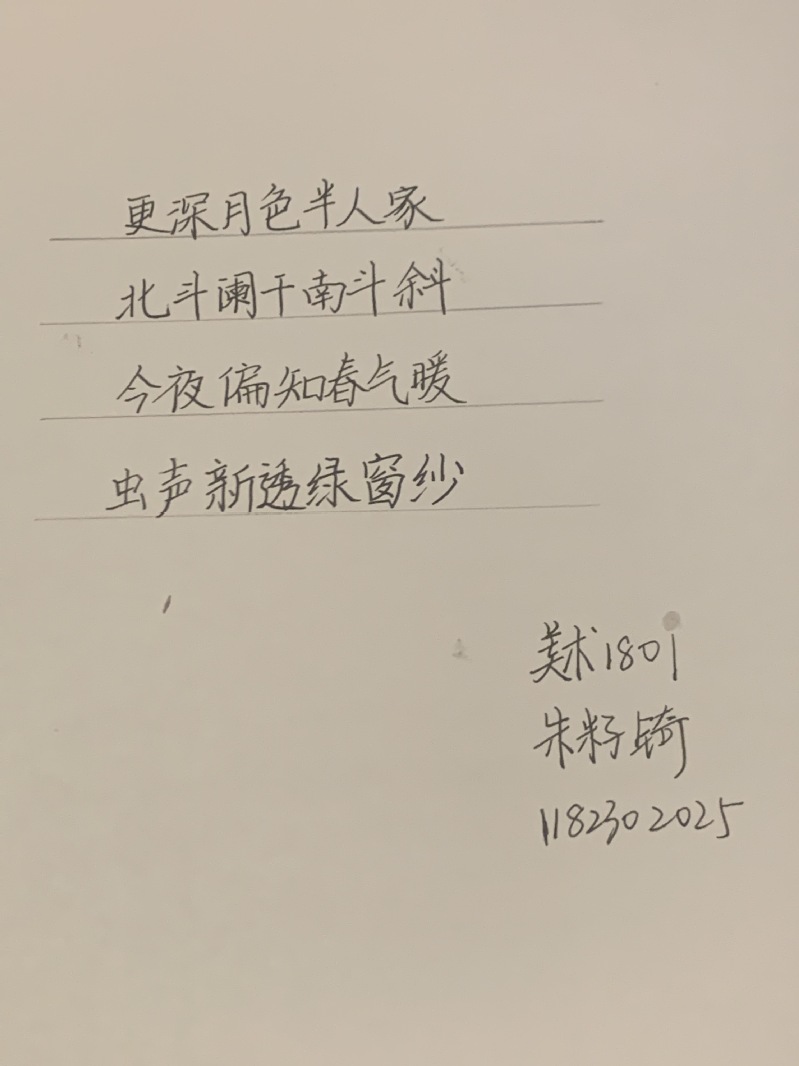 更深月色半人家
北斗阑干南斗斜
今夜偏知春气暖
虫声新透绿窗纱
美术1801
朱籽锜
1182302025